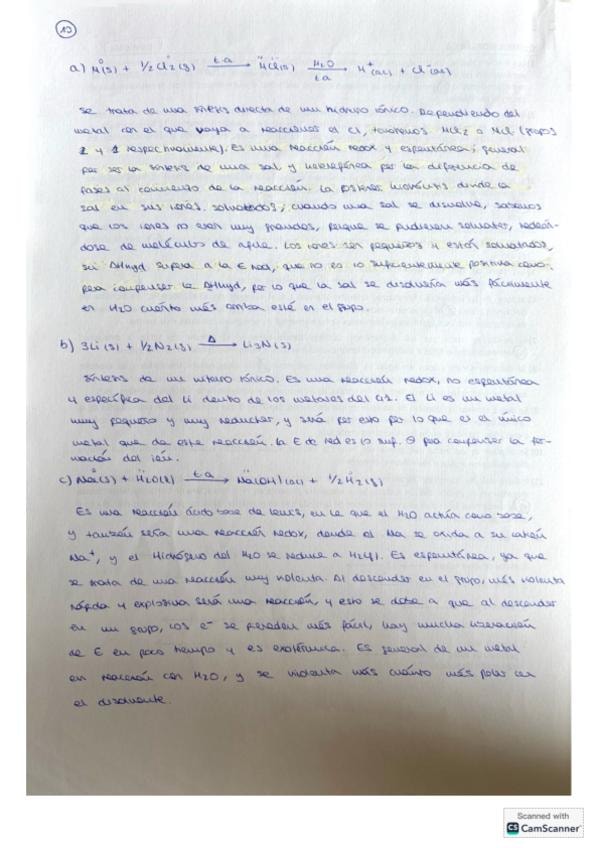 13
a) M(s) + 1/2 Cl2(g) t.a → MCl(s) H2O → t.a M+(ac) + Cl-(ac)
Se trata de una síntesis directa de un haluro iónico. Dependiendo del
metal con el que vaya a reaccionar el Cl, tendremos MCl2 o MCl (grupos
2 y 1 respectivamente). Es una reacción redox y espontánea; general
por ser la síntesis de una sal, y heterogénea por la diferencia de
fases al comienzo de la reacción. La posterior hidrólisis donde la
sal en sus iones solvatados; cuando una sal se disuelve, sabemos
que los iones no eran muy grandes, porque se pudieron solvatar, rodeán-
dose de moléculas de agua. Los iones son pequeños y están solvatados,
su ΔHhyd supera a la E red, que no es lo suficientemente positiva como
para compensar la ΔHhyd, por lo que la sal se disolvería más fácilmente
en H2O cuanto más arriba esté en el grupo.
b) 3Li(s) + 1/2 N2(g) Δ → Li3N(s)
Síntesis de un nitruro iónico. Es una reacción redox, no espontánea
y específica del Li dentro de los metales del G1. El Li es un metal
muy pequeño y muy reductor, y será por esto por lo que es el único
metal que da esta reacción. La E de red es lo suf. ⊖ para compensar la for-
mación del ión.
c) Na(s) + H2O(l) t.a → Na(OH)(ac) + 1/2 H2(g)
Es una reacción ácido base de Lewis, en la que el H2O actúa como base,
y también sería una reacción redox, donde el Na se oxida a su catión
Na+, y el Hidrógeno del H2O se reduce a H2(g). Es espontánea, ya que
se trata de una reacción muy violenta. Al descender en el grupo, más violenta
rápida y explosiva será una reacción, y esto se debe a que al descender
en un grupo, los e- se pierden más fácil, hay mucha liberación
de E en poco tiempo y es exotérmica. Es general de un metal
en reacción con H2O, y se violenta más cuánto más polar sea
el disolvente.
Scanned with
CS CamScanner